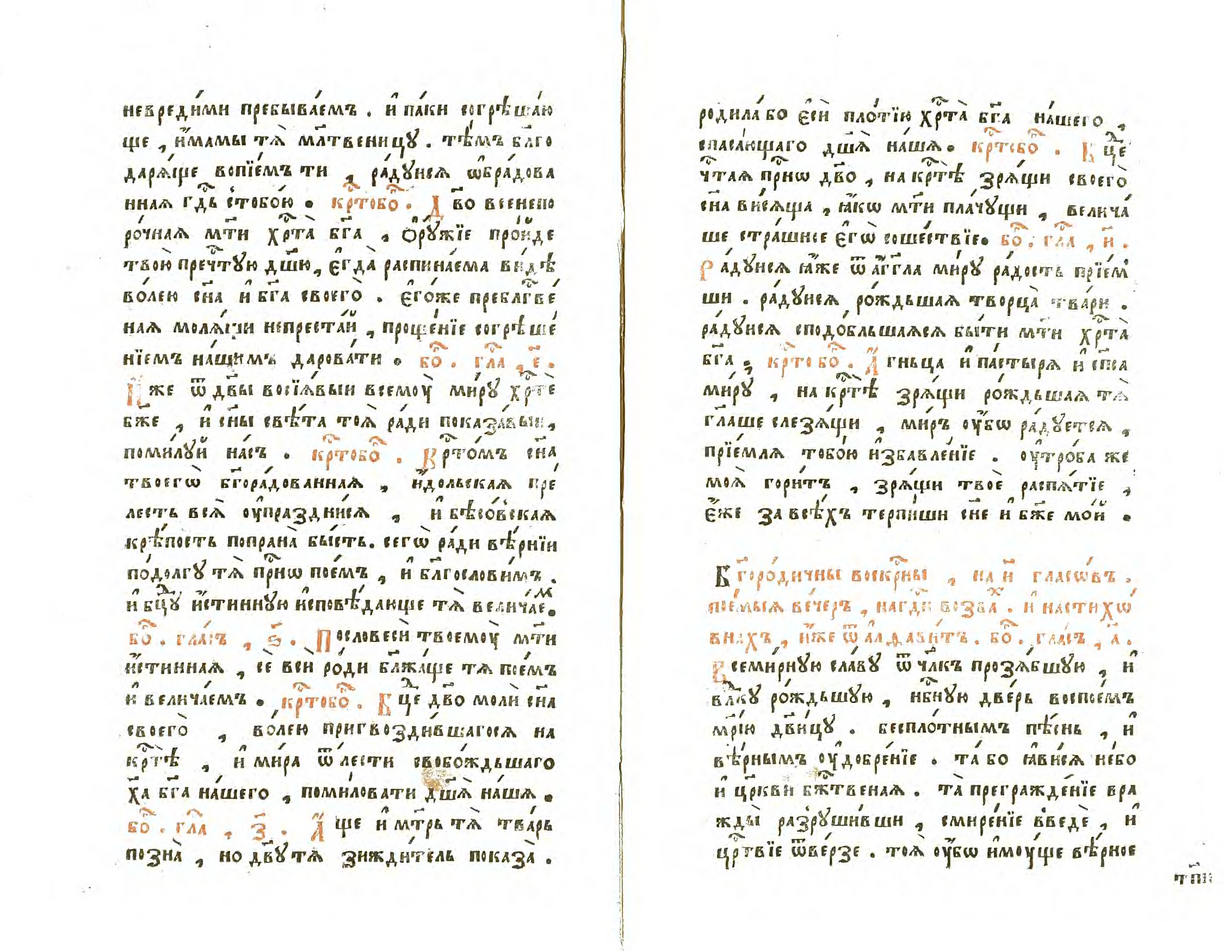 невреди́ми пребыва́емъ . и҆ па́ки согрѣша́ю
ще , и҆́мамы тѧ̀ мл҃твеницꙋ . тѣ́мъ бл҃го
дарѧ́ще вопїе́мъ ти , ра́дꙋисѧ ѡ҆бра́дова
ннаѧ гдⷭ҇ь стобо́ю . крⷭ҇тобоⷣ . Д҃во всенепо
ро́чнаѧ мт҃и хрⷭ҇та̀ бг҃а , ѻ҆рꙋ́жїе про́иде
твою̀ пречтⷭ҇ꙋю дш҃ю , є҆гда̀ распина́ема ви́дѣ
во́лею сн҃а и҆ бг҃а своего̀ . є҆го́же пребл҃гⷭ҇ве́
наѧ молѧ́щи непреста́й , проще́нїе согрѣше́
нїемъ на́шимъ дарова́ти . боⷣ . гла , є҃ .
И҆́же ѿ дв҃ы восїѧ́выи всемоу̀ ми́рꙋ хрⷭ҇тѐ
бж҃е , и҆ сн҃ы свѣ́та тоѧ̀ ра́ди показа́выи ,
поми́лꙋй на́съ . крⷭ҇тобоⷣ . Крⷭ҇то́мъ сн҃а
твоегѡ̀ бг҃ора́дованнаѧ , и҆́дольскаѧ пре́
лесть всѧ̀ оу҆праздни́сѧ , и҆ бѣсо́вскаѧ
крѣ́пость попрана̀ бы́сть . сегѡ̀ ра́ди вѣ́рнїи
подо́лгꙋ тѧ̀ при́снѡ пое́мъ , и҆ бл҃гослови́мъ .
и҆ бц҃ꙋ и҆́стиннꙋю и҆сповѣ́дающе тѧ̀ велича́еⷨ .
боⷣ . гла́съ , ѕ҃ . Пословесѝ твоемоу̀ мт҃и
и҆́стиннаѧ , сѐ всѝ ро́ди бл҃жа́ще тѧ̀ пое́мъ
и҆ велича́емъ . крⷭ҇тобоⷣ . Бц҃е дв҃о молѝ сн҃а
своего̀ , во́лею пригвозди́вшагосѧ на
крⷭ҇тѣ̀ , и҆ ми́ра ѿ ле́сти свобо́ждьшаго
ха҃ бг҃а на́шего , поми́ловати дш҃ѧ̀ на́шѧ .
боⷣ . гла , з҃ . А҆́ще и҆ мт҃рь тѧ̀ тва́рь
позна̀ , но дв҃ꙋ тѧ̀ зижди́тель показа̀ .
родила́ бо є҆сѝ пло́тїю хрⷭ҇та̀ бг҃а на́шего ,
спаса́ющаго дш҃ѧ̀ на́шѧ . крⷭ҇тобоⷣ . Бц҃е
чтⷭ҇аѧ при́снѡ дв҃о , на крⷭ҇тѣ̀ зрѧ́щи своего̀
сн҃а висѧ́ща , ꙗ҆́кѡ мт҃и пла́чꙋщи , велича́
ше стра́шное є҆гѡ̀ сошⷭ҇твїе . боⷣ . гла , и҃ .
Ра́дꙋисѧ ꙗ҆́же ѿ а҆́гг҃ла ми́рꙋ ра́дость прїе́м
ши . ра́дꙋисѧ ро́ждьшаѧ творца̀ тва́ри .
ра́дꙋисѧ сподо́бльшаѧсѧ бы́ти мт҃и хрⷭ҇та̀
бг҃а , крⷭ҇тобоⷣ . А҆́гньца и҆ па́стырѧ и҆ сп҃са
ми́рꙋ , на крⷭ҇тѣ̀ зрѧ́щи ро́ждьшаѧ тѧ̀
гл҃аше слезѧ́щи , ми́ръ оу҆́бѡ ра́дꙋетсѧ ,
прїе́млѧ тобо́ю и҆збавле́нїе . оу҆тро́ба же
моѧ̀ гори́тъ , зрѧ́щи твоѐ распѧ́тїе ,
є҆́же за всѣ́хъ терпи́ши сн҃е и҆ бж҃е мо́й .
Бг҃оро́дичны воскрⷭ҇ны , на и҃ гласѡ́въ .
пое́мыѧ ве́черъ , нагдⷭ҇и возва́хъ . и҆ настихѡ́
внахъ , и҆́же ѿ алфави́тъ . боⷣ . гла́съ , а҃ .
Всеми́рнꙋю сла́вꙋ ѿ чл҃къ прозѧ́бшꙋю , и҆
влⷣкꙋ ро́ждьшꙋю , нбⷭ҇нꙋю две́рь воспое́мъ
мр҃і́ю дв҃и́цꙋ . беспло́тнымъ пѣ́снь , и҆
вѣ́рнымъ оу҆добре́нїе . та́ бо ꙗ҆ви́сѧ не́бо
и҆ цр҃кви бж҃твенаѧ . та̀ прегражде́нїе вра
жды̀ разрꙋши́вши , смире́нїе введѐ , и҆
црⷭ҇твїе ѿве́рзе . тоѧ̀ оу҆́бѡ и҆мꙋ́ще вѣ́рное
тп҃и